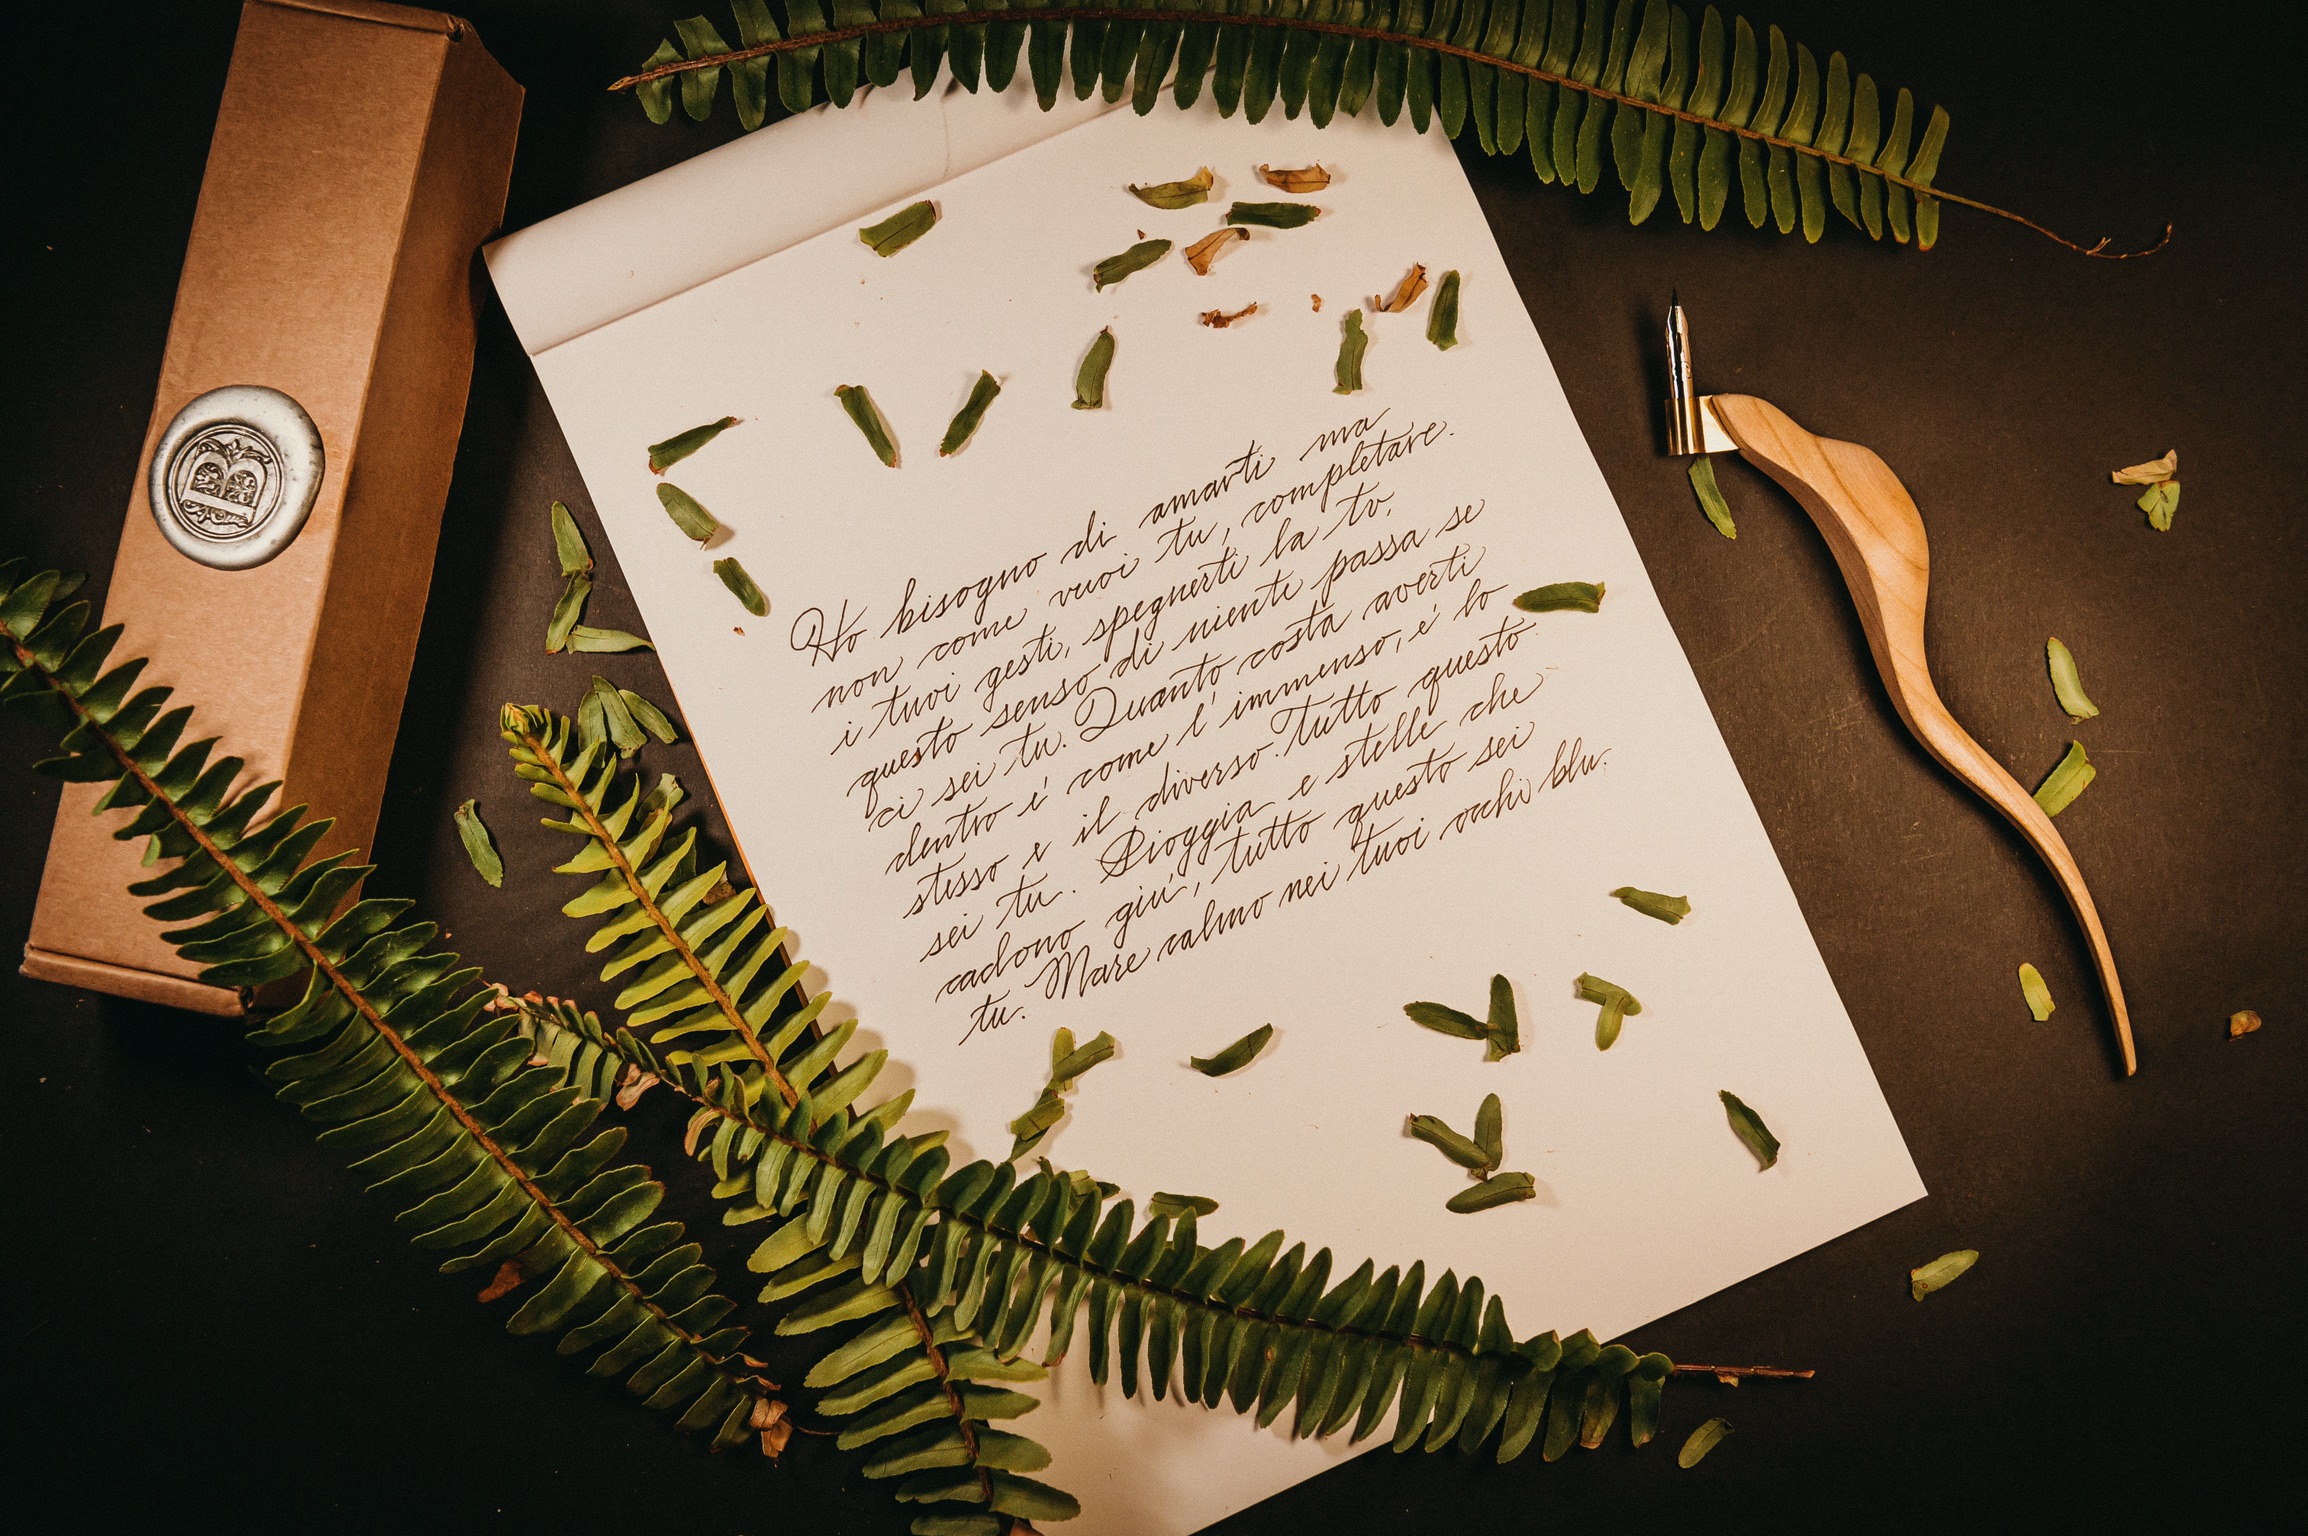 B
Ho bisogno di amarti ma
non come vuoi tu, completare.
i tuoi gesti, spegnerti la tv,
questo senso di niente passa se
ci sei tu. Quanto costa averti
dentro é come l' immenso, é lo
stesso e il diverso. Tutto questo
sei tu. Pioggia e stelle che
cadono giú, tutto questo sei
tu. Mare calmo nei tuoi occhi blu.